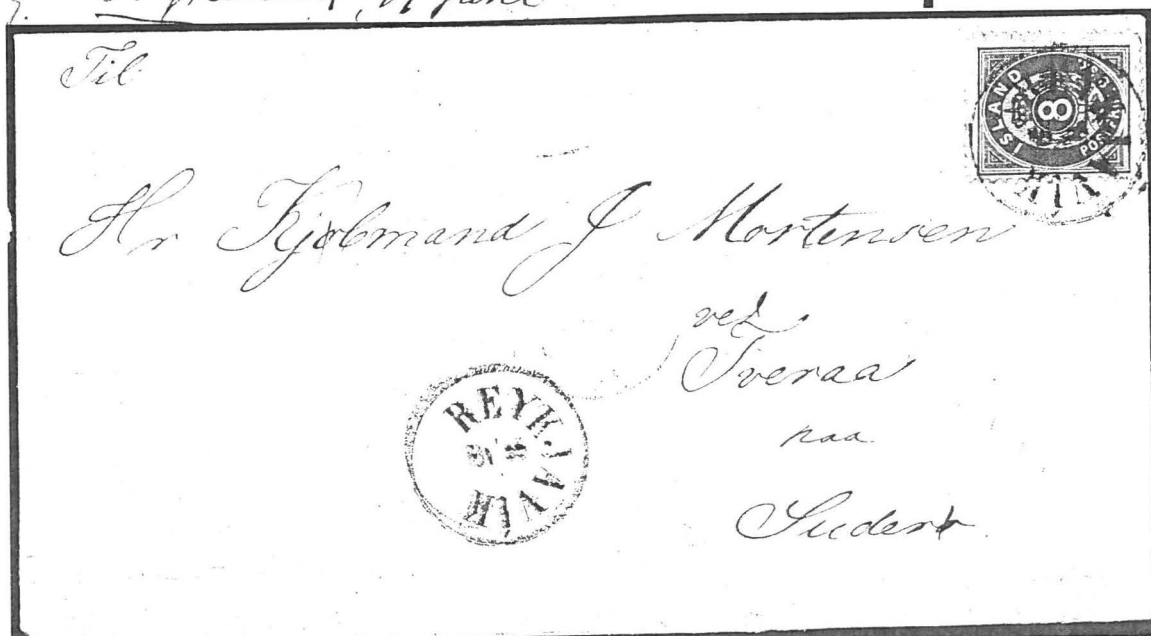 Til
ISLAND
8
POSTFRIM
VIK
Hr Kjøbmand J Mortensen
ved
Tveraa
paa
Suderø
REYKJAVIK